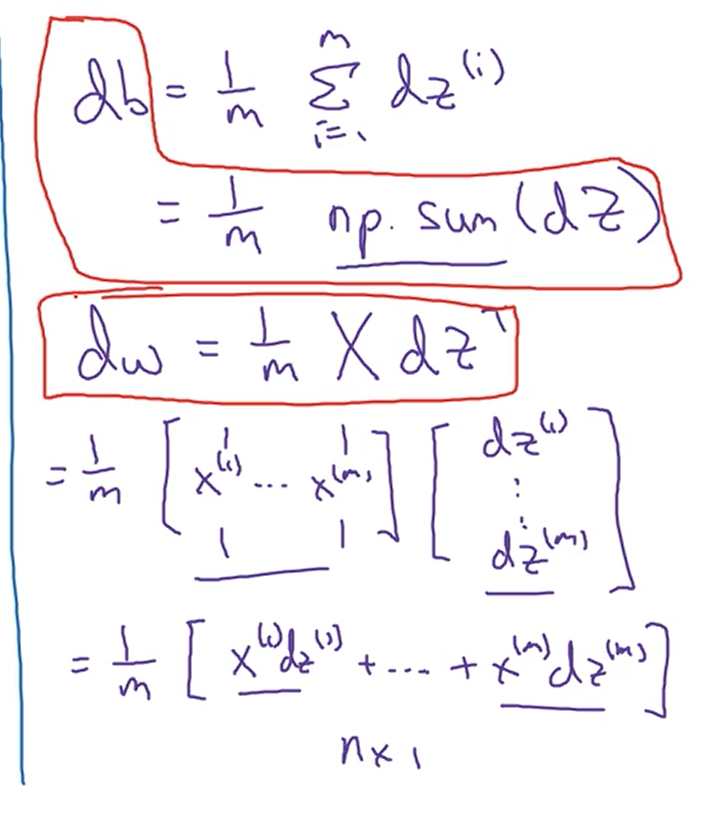 db = 1/m Σ_{i=1}^{m} dz^{(i)}
= 1/m np.sum(dZ)
dw = 1/m X dz^T
= 1/m [x^{(1)} ... x^{(m)}] [dz^{(1)} ⋮ dz^{(m)}]
= 1/m [x^{(1)}dz^{(1)} + ... + x^{(m)}dz^{(m)}]
n × 1